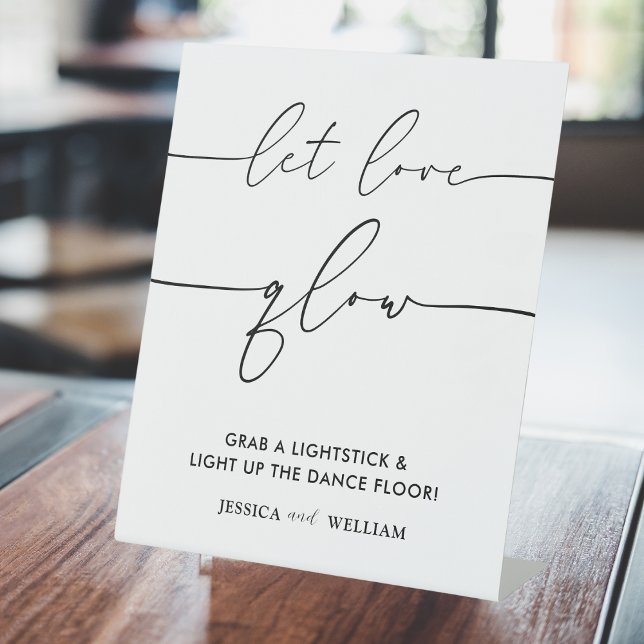 let love
glow
GRAB A LIGHTSTICK &
LIGHT UP THE DANCE FLOOR!
JESSICA and WELLIAM